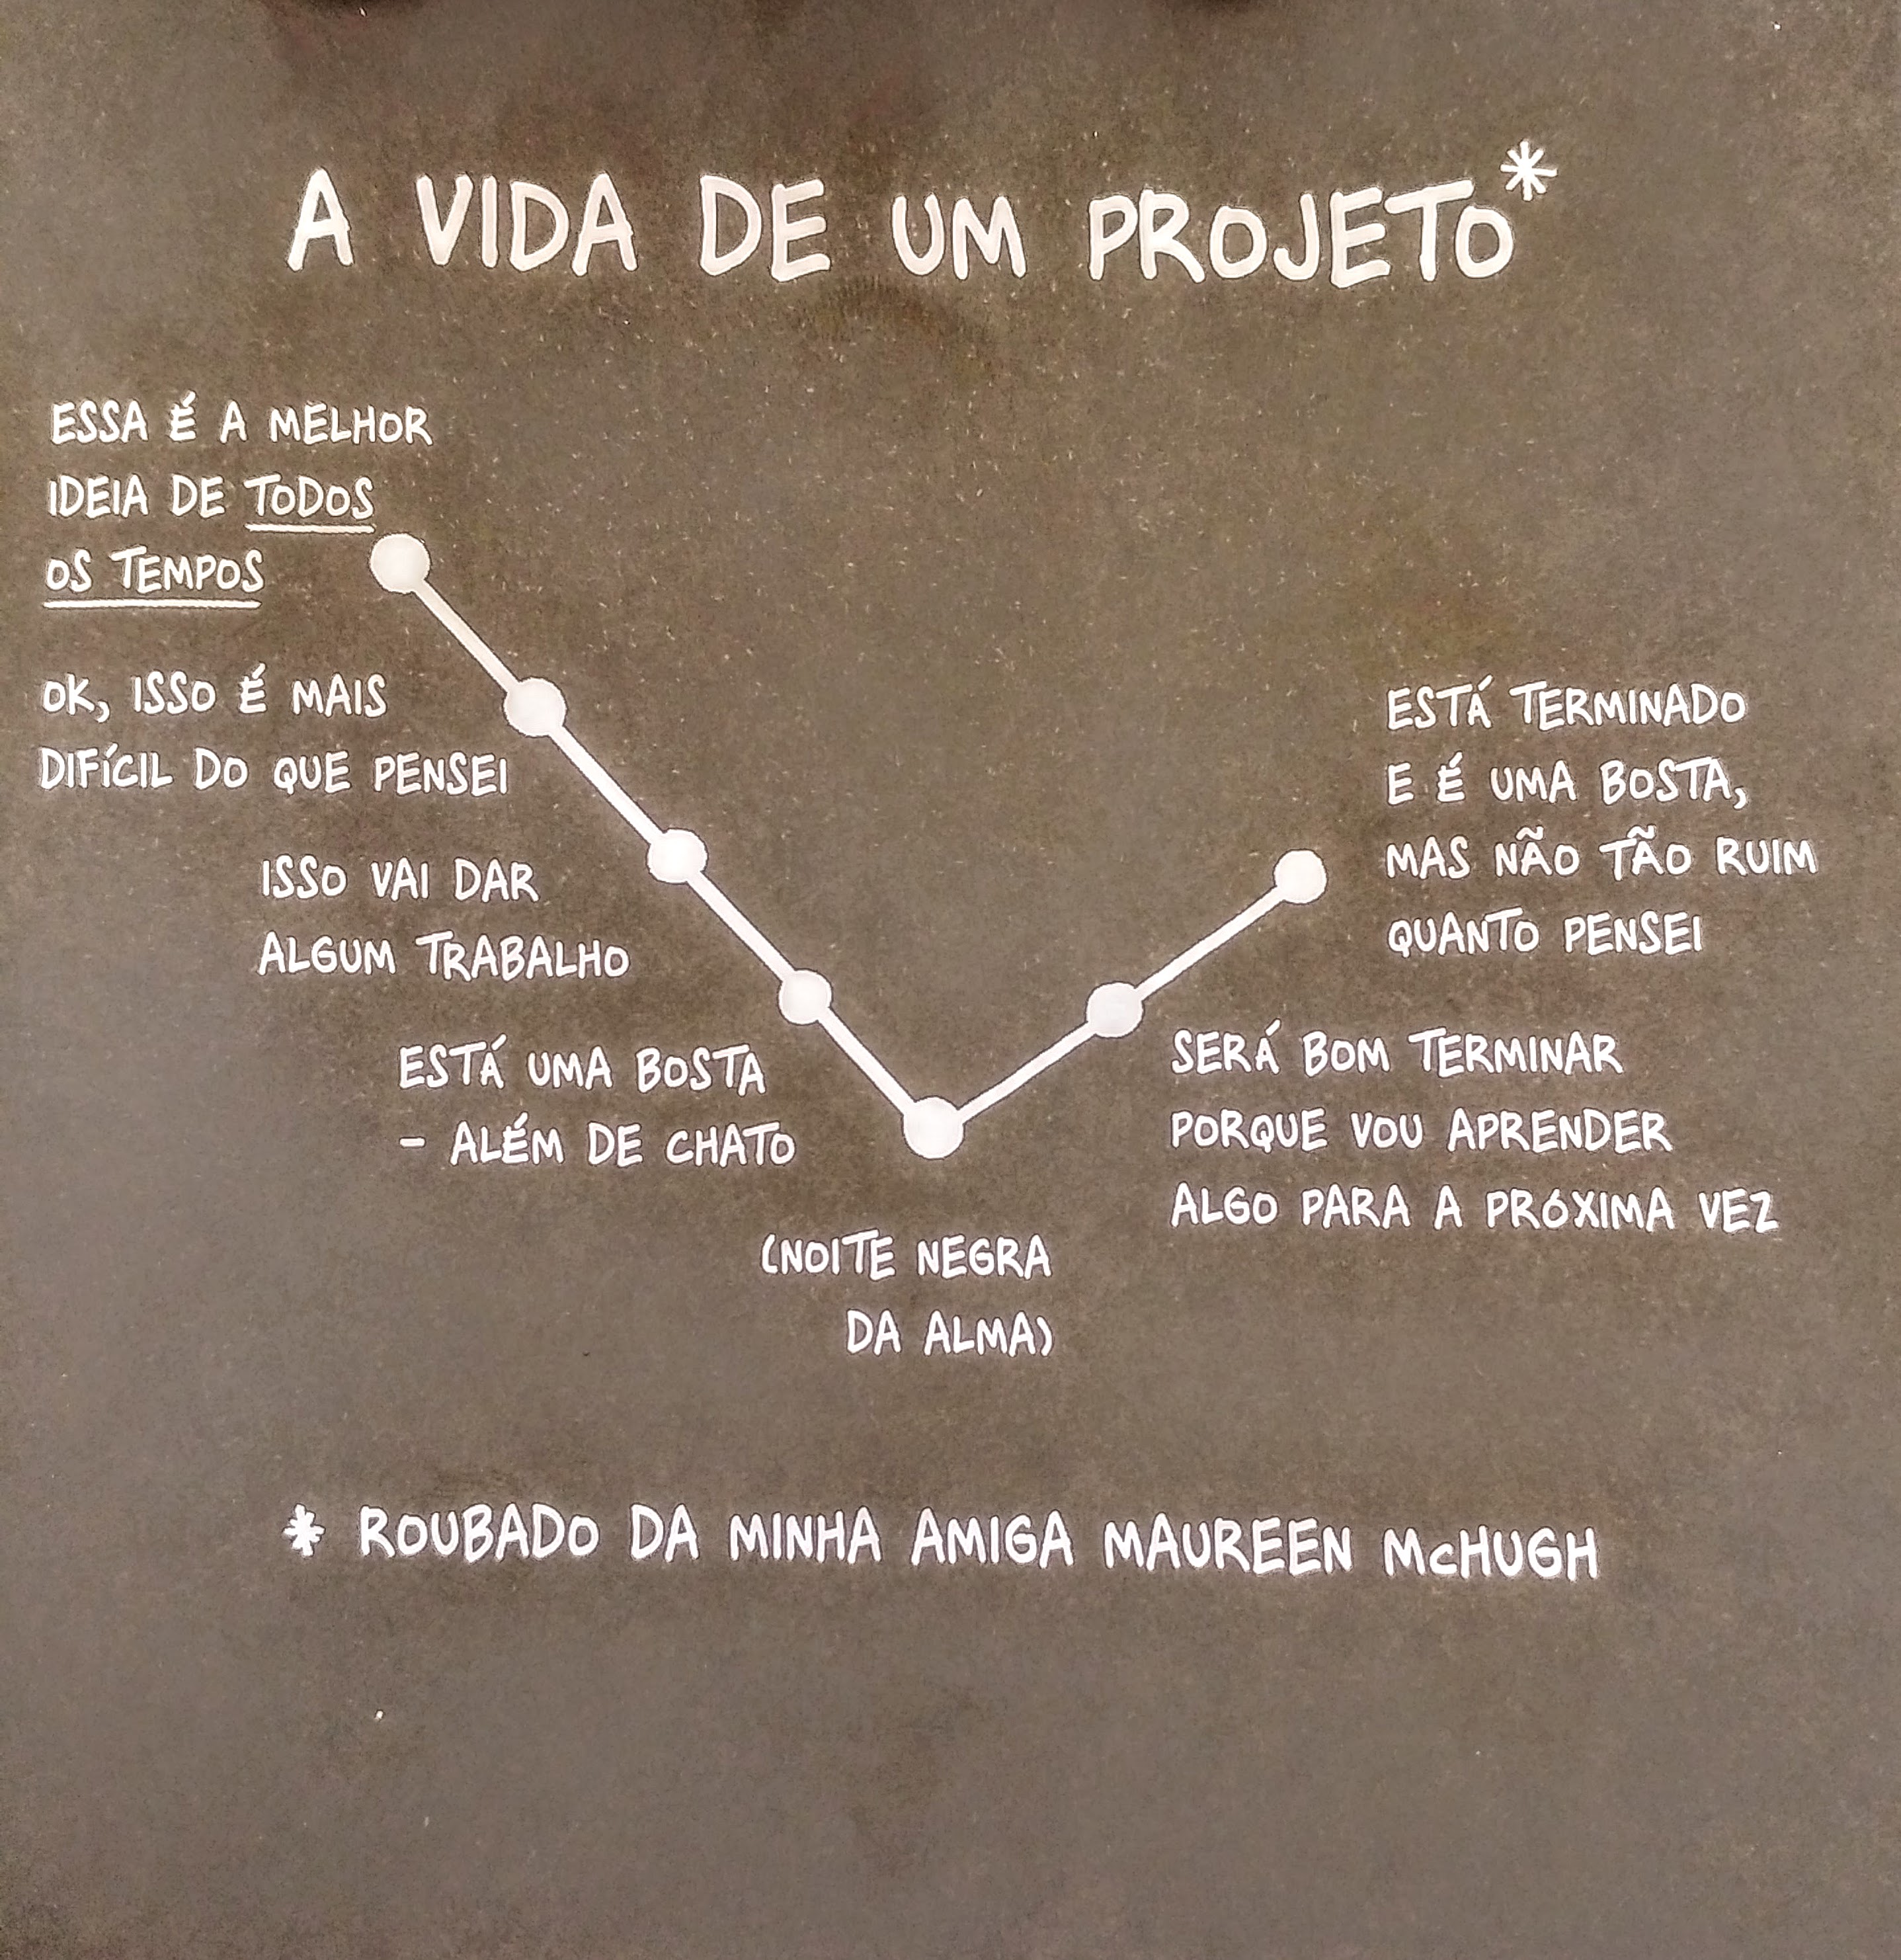 A VIDA DE UM PROJETO*
ESSA É A MELHOR
IDEIA DE TODOS
OS TEMPOS
OK, ISSO É MAIS
DIFÍCIL DO QUE PENSEI
ISSO VAI DAR
ALGUM TRABALHO
ESTÁ UMA BOSTA
- ALÉM DE CHATO
(NOITE NEGRA
DA ALMA)
SERÁ BOM TERMINAR
PORQUE VOU APRENDER
ALGO PARA A PRÓXIMA VEZ
ESTÁ TERMINADO
E É UMA BOSTA,
MAS NÃO TÃO RUIM
QUANTO PENSEI
* ROUBADO DA MINHA AMIGA MAUREEN McHUGH